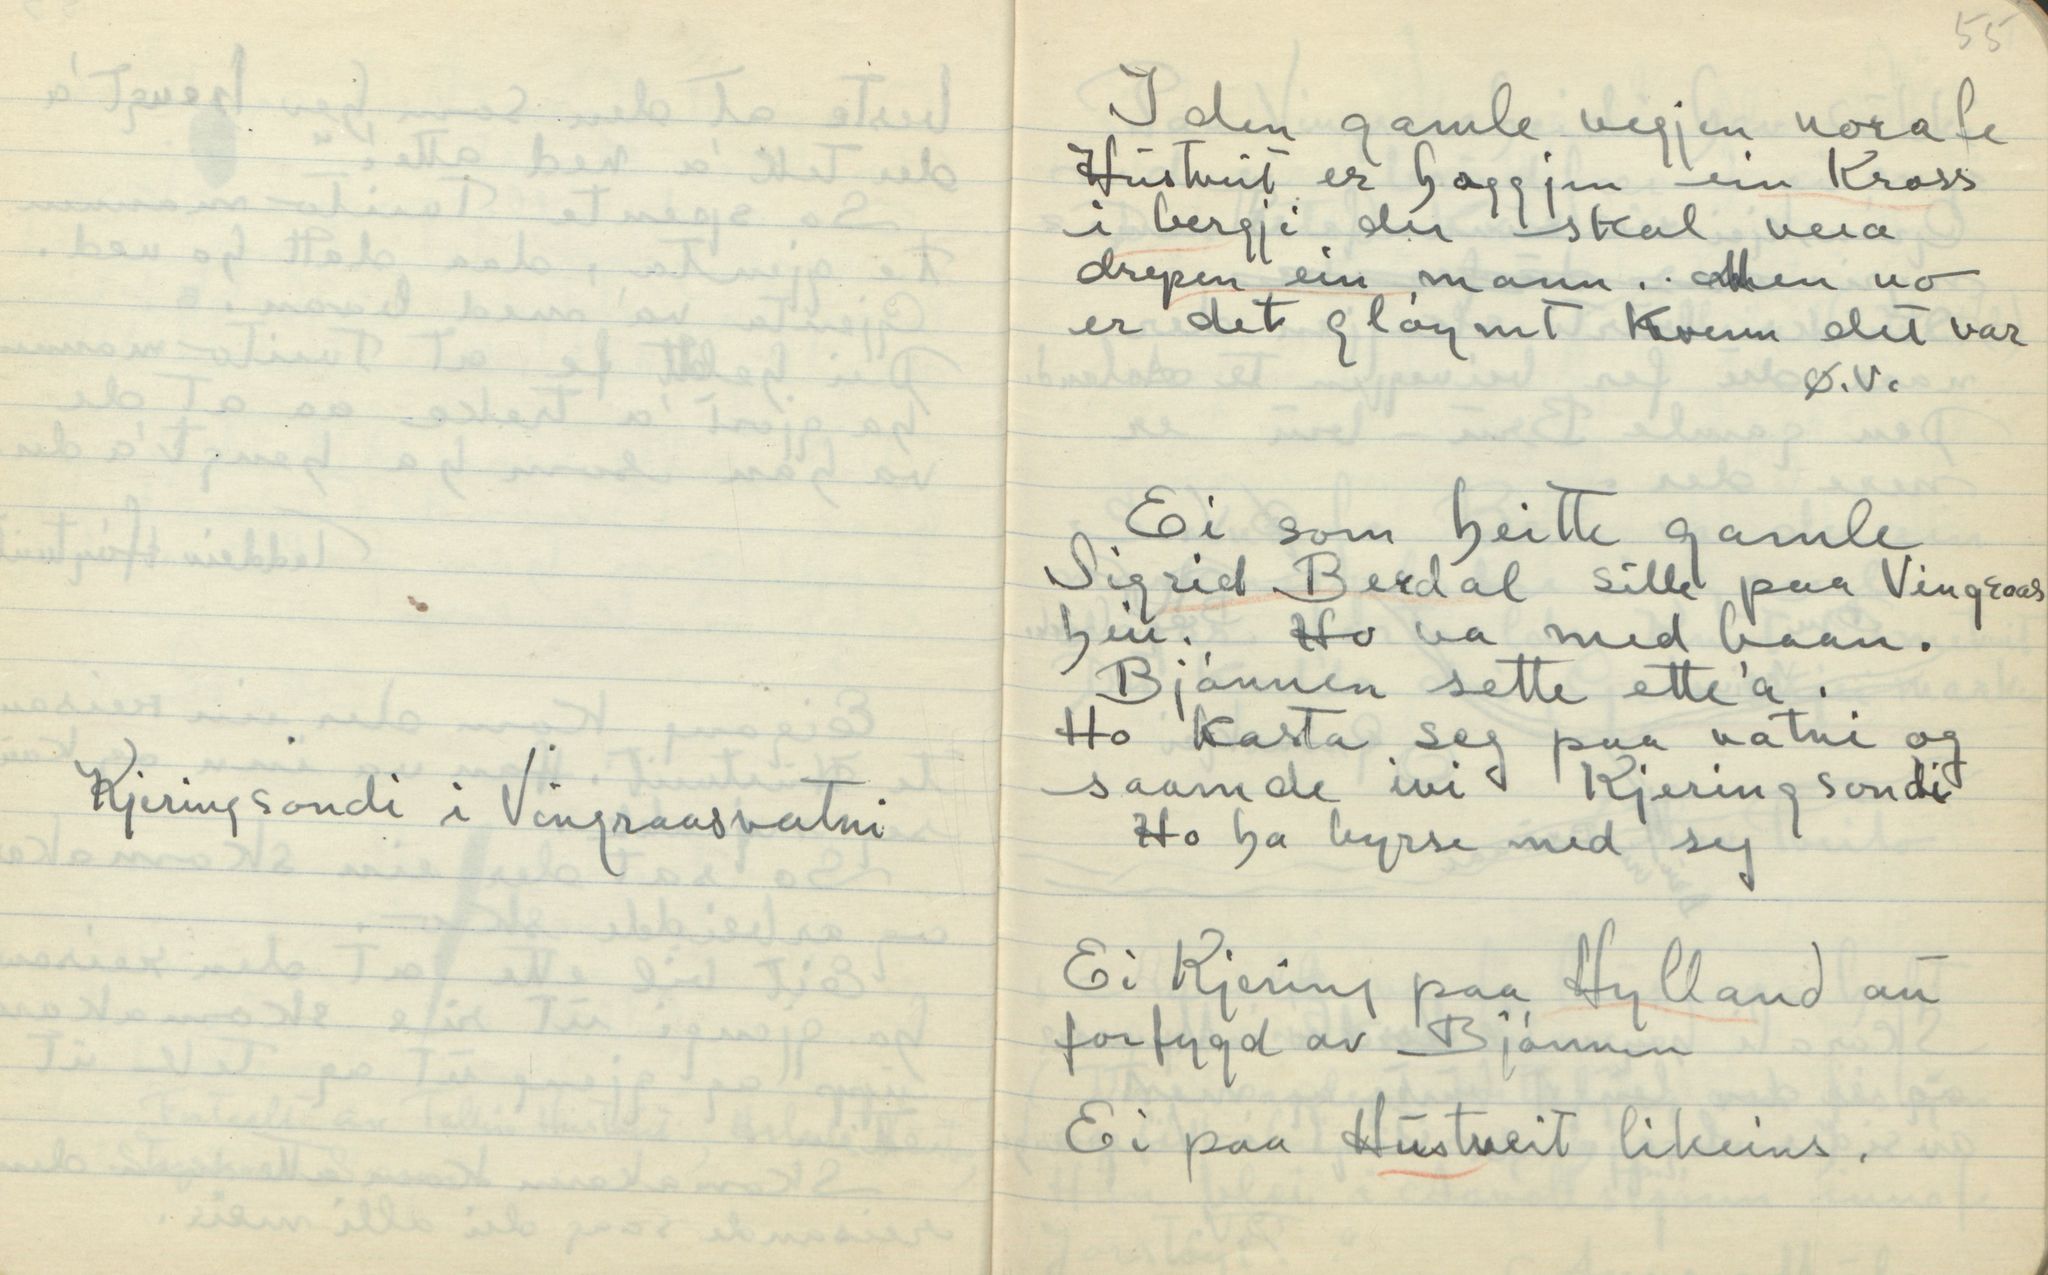 Kjeringsondi i Vingraasvatni
55
I den gamle vegjen norafe
Hústveit er hoggjen ein Kross
i bergji der skal vera
drepen ein mann. Men no
er det gløymt Kvenn det var
Ø.V.
Ei som heitte gamle
Sigrid Berdal sille paa Vingraas
hei. Ho va med baan.
Bjònnen sette ette'a.
Ho Kasta seg paa vatni og
saamde ivi Kjeringsondi
Ho ha byrse med seg
Ei Kjering paa Hylland aú
forfygd av Bjònnen
Ei paa Hústveit likeins.